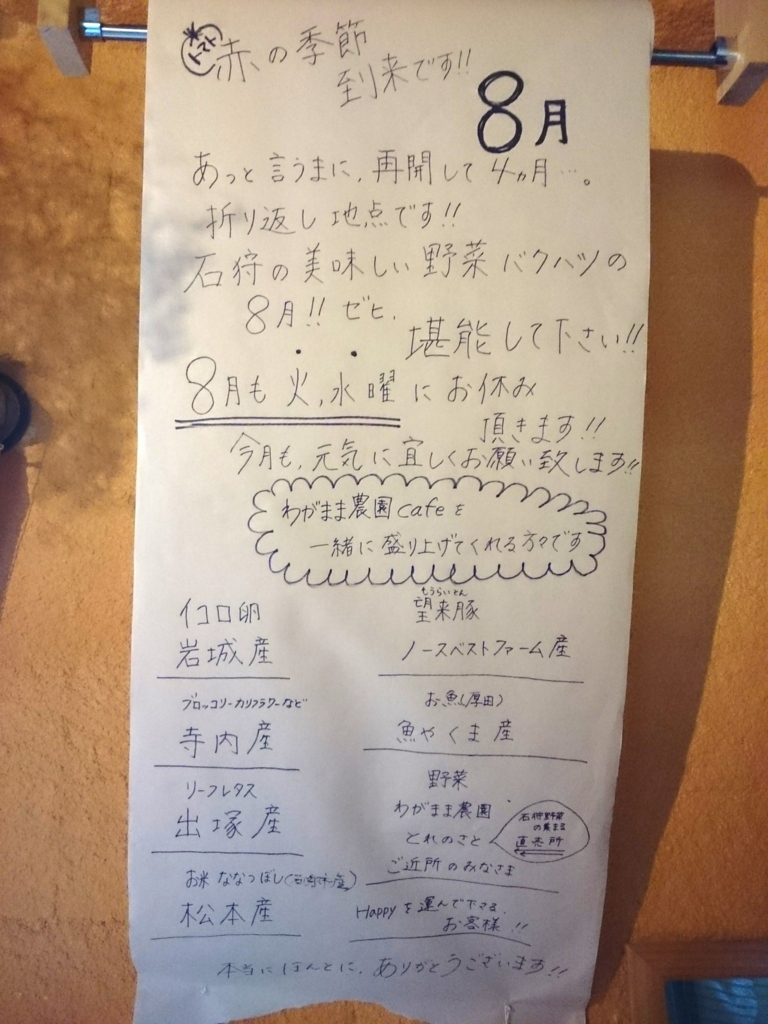 トマト
赤の季節
到来です!!
8月
あっと言うまに、再開して4ヵ月…。
折り返し地点です!!
石狩の美味しい野菜バクハツの
8月!!ゼヒ、
堪能して下さい!!
8月も火,水曜にお休み
頂きます!!
今月も、元気に宜しくお願い致します!!
わがまま農園cafeを
一緒に盛り上げてくれる方々です
イコロ卵
岩城産
もうらいとん
望来豚
ノースベストファーム産
ブロッコリーカリフラワーなど
寺内産
お魚(厚田)
魚やくま産
リーフレタス
出塚産
野菜
わがまま農園
とれのさと
石狩野菜
の集まる
直売所
ご近所のみなさま
お米ななつぼし
松本産
Happyを運んで下さる、
お客様!!
本当にほんとに、ありがとうございます!!